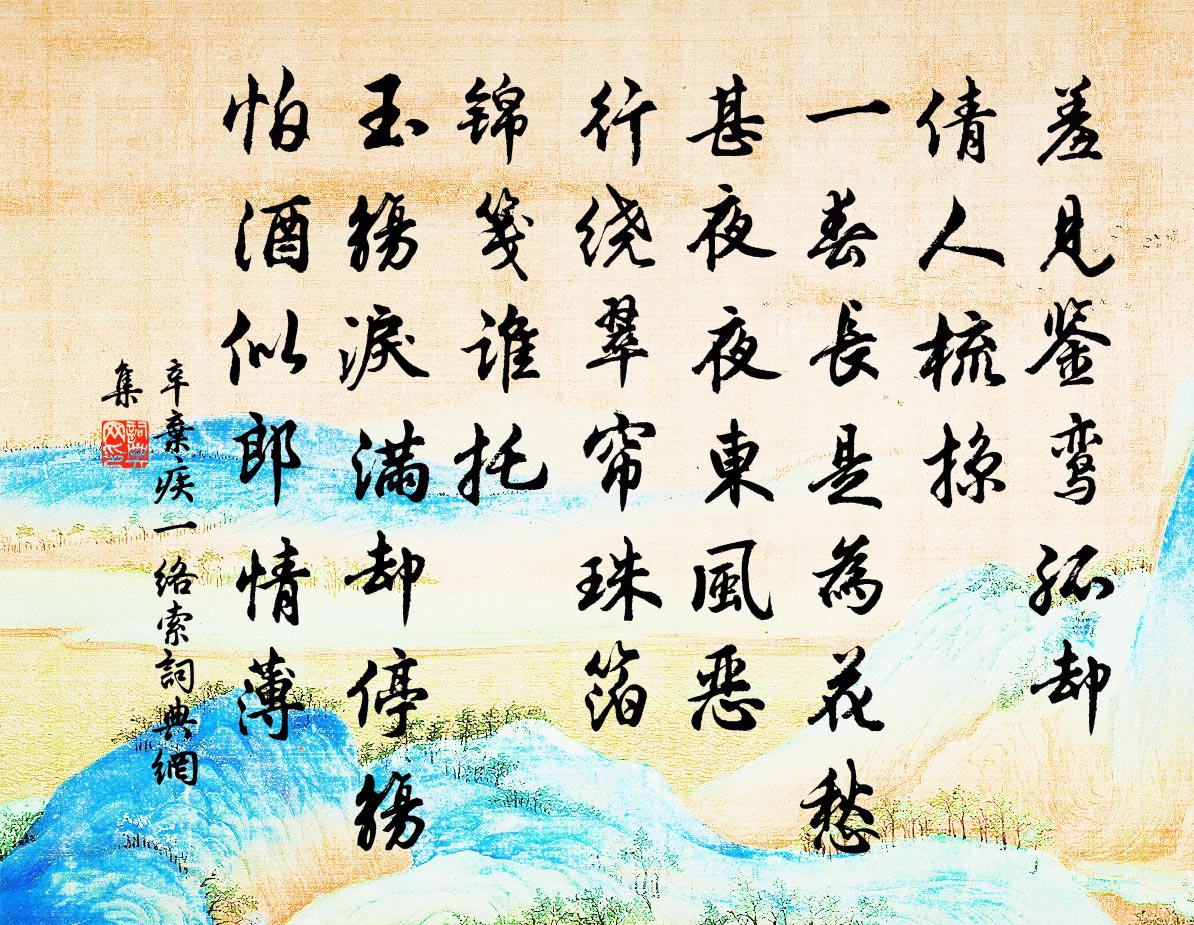 羞见鉴鸾孤却
倩人梳掠
一春長是為花愁
甚夜夜東風惡
行绕翠帘珠箔
锦笺谁托
玉觴淚满却停觴
怕酒似郎情薄
辛棄疾一络索詞典網
集